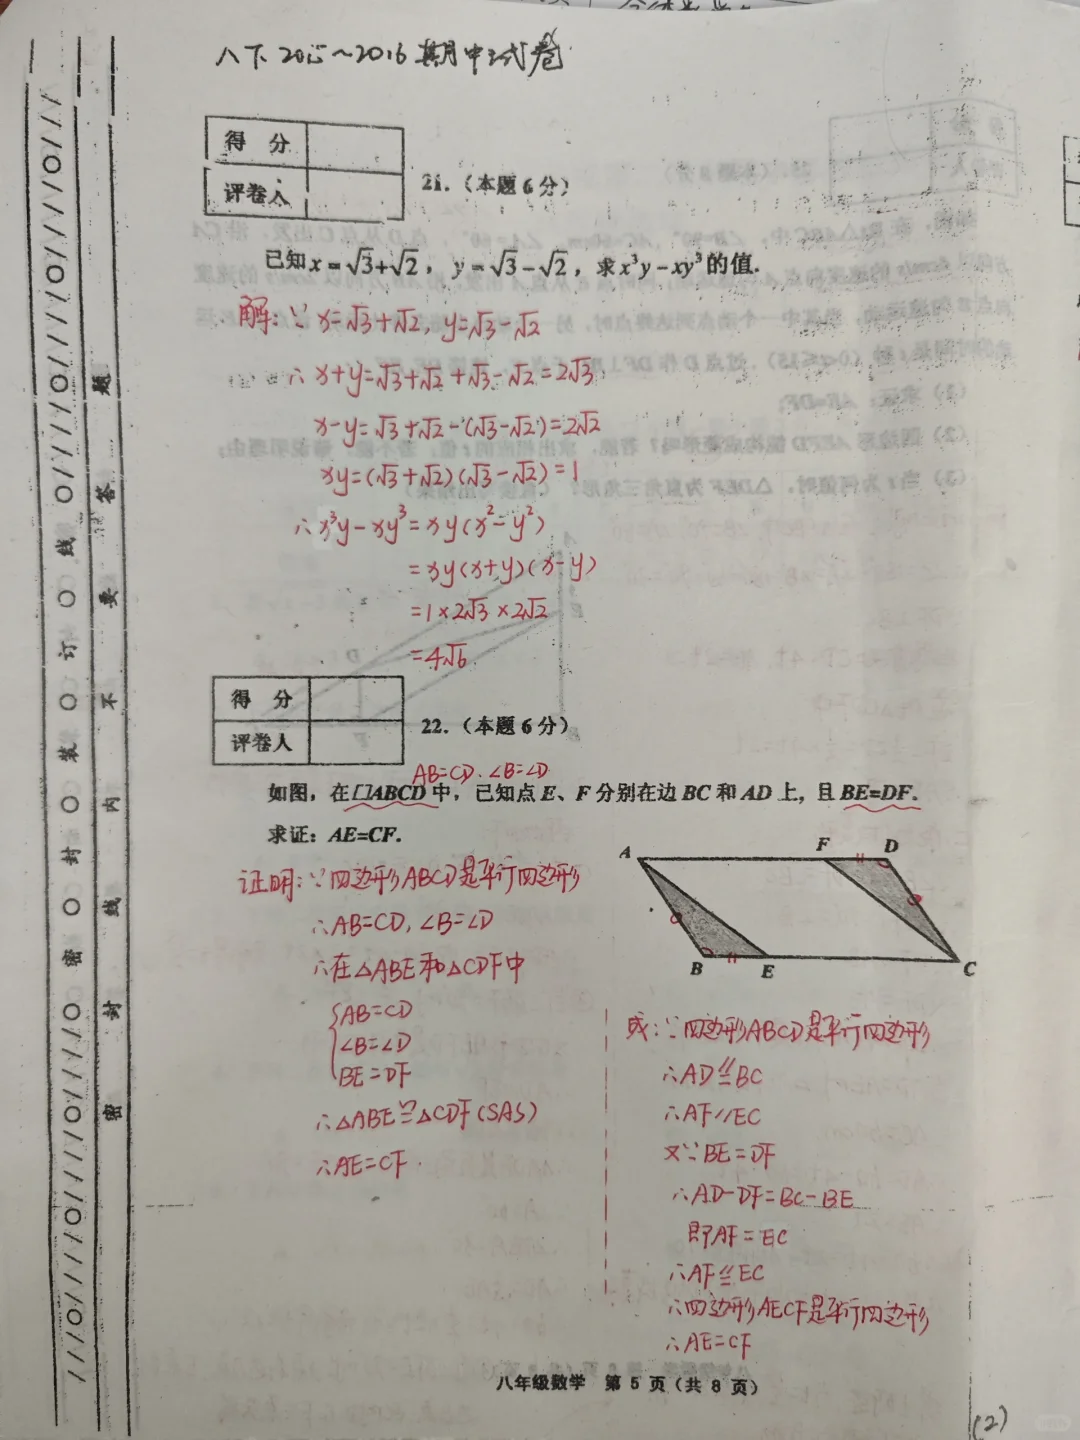 八下 2015~2016 期中试卷
得 分
评卷人
21.(本题6分)
已知x=√3+√2, y=√3-√2, 求x³y-xy³的值.
解:∵ x=√3+√2, y=√3-√2
∴x+y=√3+√2+√3-√2=2√3
x-y=√3+√2-(√3-√2)=2√2
xy=(√3+√2)(√3-√2)=1
∴x³y-xy³=xy(x²-y²)
=xy(x+y)(x-y)
=1×2√3×2√2
=4√6
得 分
评卷人
22.(本题6分)
AB=CD.∠B=∠D
如图,在□ABCD中,已知点E、F分别在边BC和AD上,且BE=DF.
求证:AE=CF.
A
F
D
B
E
C
证明:∵四边形ABCD是平行四边形
∴AB=CD,∠B=∠D
∴在△ABE和△CDF中
{AB=CD
∠B=∠D
BE=DF
∴△ABE≌△CDF(SAS)
∴AE=CF.
或:∵四边形ABCD是平行四边形
∴AD∥=BC
∴AF∥EC
又∵BE=DF
∴AD-DF=BC-BE
即AF=EC
∴AF∥=EC
∴四边形AECF是平行四边形
∴AE=CF
八年级数学 第5页(共8页)
(2)
密 封 线 内 不 要 答 题
密 封 装 订 线